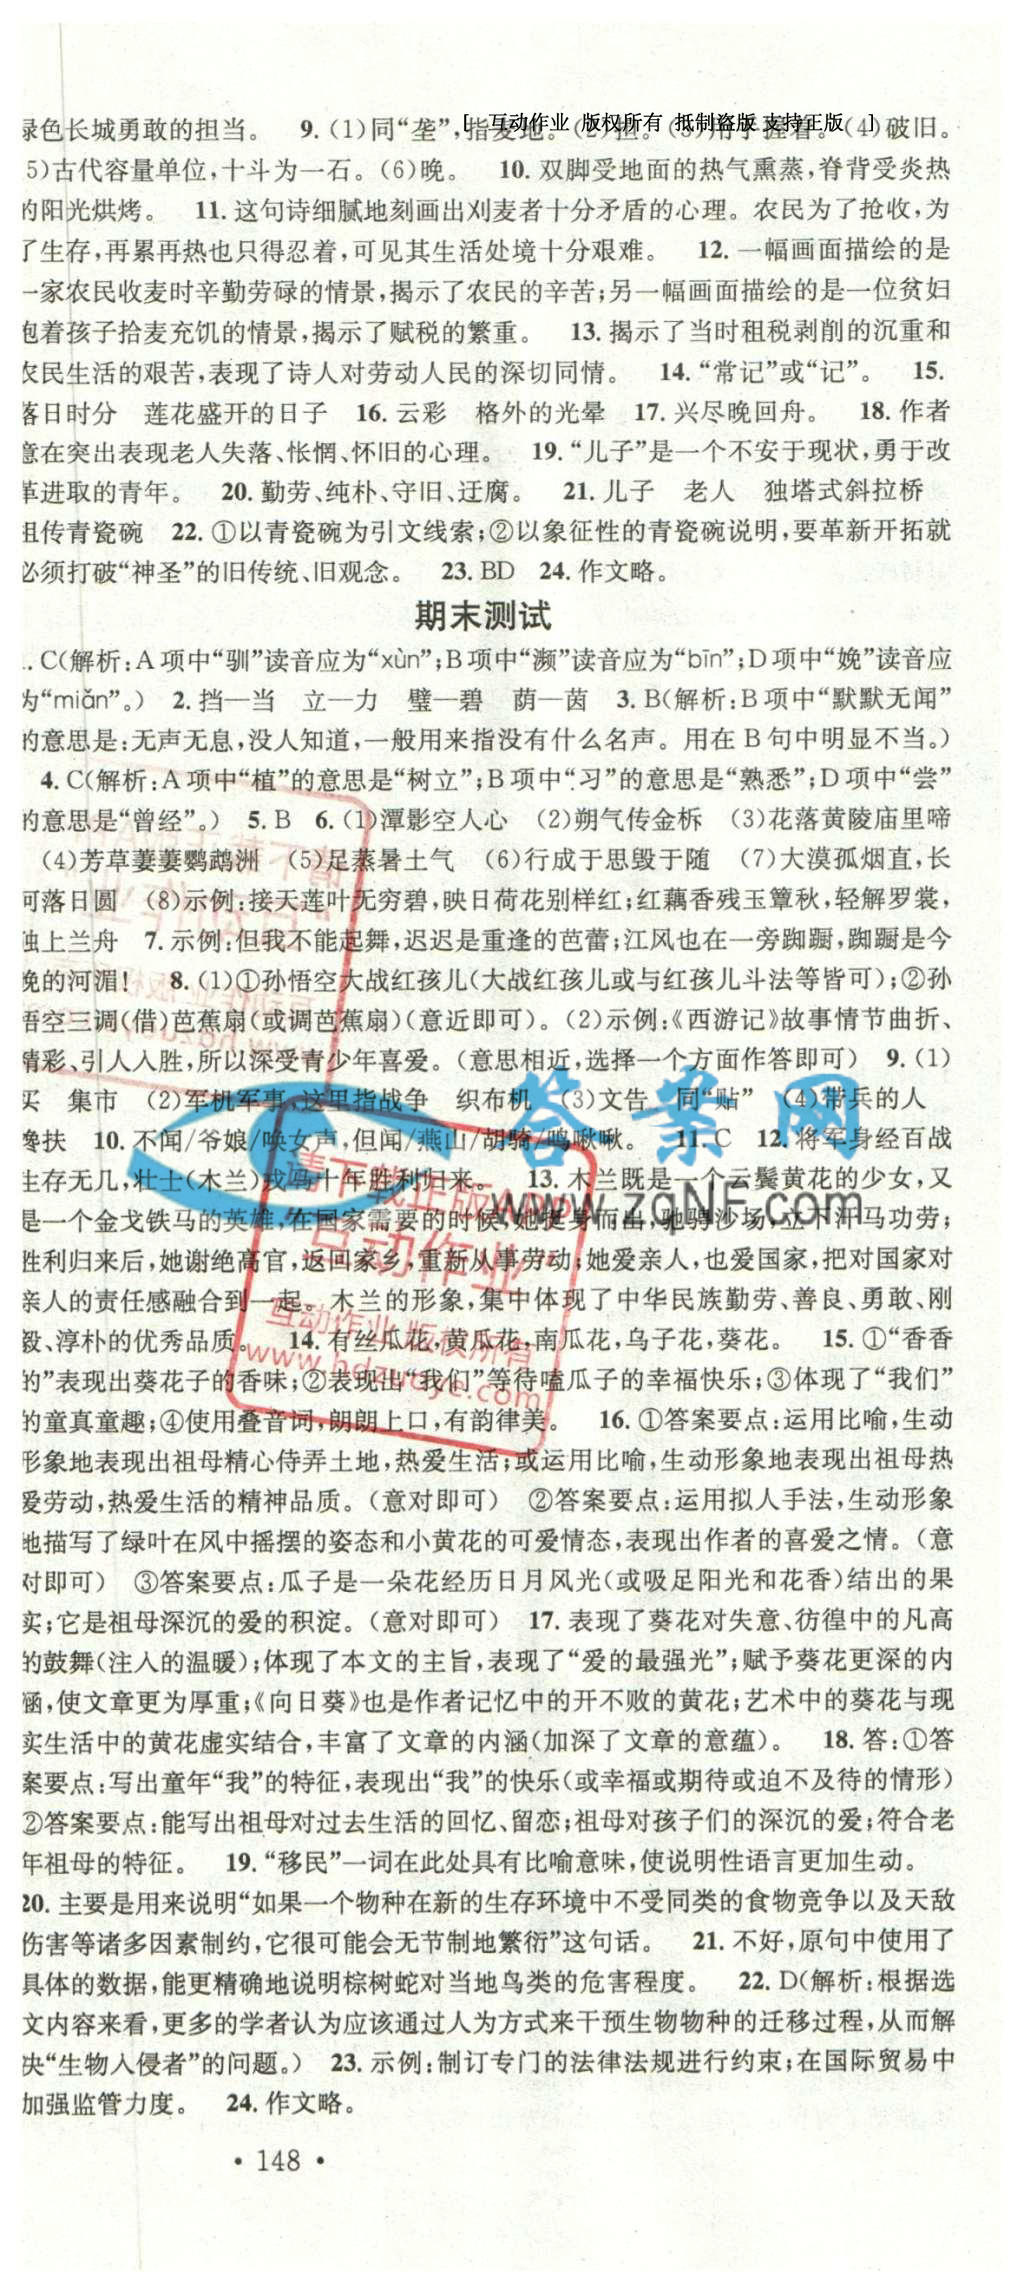 [ 互动作业 版权所有 抵制盗版 支持正版 ]
绿色长城勇敢的担当。 9.(1)同“垄”,指麦地。(2)担。(3)用手握着。(4)破旧。
(5)古代容量单位,十斗为一石。(6)晚。 10.双脚受地面的热气熏蒸,脊背受炎热
的阳光烘烤。 11.这句诗细腻地刻画出刈麦者十分矛盾的心理。农民为了抢收,为
了生存,再累再热也只得忍着,可见其生活处境十分艰难。 12.一幅画面描绘的是
一家农民收麦时辛勤劳碌的情景,揭示了农民的辛苦;另一幅画面描绘的是一位贫妇
抱着孩子拾麦充饥的情景,揭示了赋税的繁重。 13.揭示了当时租税剥削的沉重和
农民生活的艰苦,表现了诗人对劳动人民的深切同情。 14.“常记”或“记”。 15.
落日时分 莲花盛开的日子 16.云彩 格外的光晕 17.兴尽晚回舟。 18.作者
意在突出表现老人失落、怅惘、怀旧的心理。 19.“儿子”是一个不安于现状,勇于改
革进取的青年。 20.勤劳、纯朴、守旧、迂腐。 21.儿子 老人 独塔式斜拉桥
祖传青瓷碗 22.①以青瓷碗为引文线索;②以象征性的青瓷碗说明,要革新开拓就
必须打破“神圣”的旧传统、旧观念。 23.BD 24.作文略。
期末测试
1.C(解析:A项中“驯”读音应为“xùn”;B项中“濒”读音应为“bīn”;D项中“娩”读音应
为“miǎn”。) 2.挡—当 立—力 璧—碧 荫—茵 3.B(解析:B项中“默默无闻”
的意思是:无声无息,没人知道,一般用来指没有什么名声。用在B句中明显不当。)
4.C(解析:A项中“植”的意思是“树立”;B项中“习”的意思是“熟悉”;D项中“尝”
的意思是“曾经”。) 5.B 6.(1)潭影空人心 (2)朔气传金柝 (3)花落黄陵庙里啼
(4)芳草萋萋鹦鹉洲 (5)足蒸暑土气 (6)行成于思毁于随 (7)大漠孤烟直,长
河落日圆 (8)示例:接天莲叶无穷碧,映日荷花别样红;红藕香残玉簟秋,轻解罗裳,
独上兰舟 7.示例:但我不能起舞,迟迟是重逢的芭蕾;江风也在一旁踟蹰,踟蹰是今
晚的河湄! 8.(1)①孙悟空大战红孩儿(大战红孩儿或与红孩儿斗法等皆可);②孙
悟空三调(借)芭蕉扇(或调芭蕉扇)(意近即可)。(2)示例:《西游记》故事情节曲折、
精彩、引人入胜,所以深受青少年喜爱。(意思相近,选择一个方面作答即可) 9.(1)
买 集市 (2)军机军事,这里指战争 织布机 (3)文告 同“贴” (4)带兵的人
搀扶 10.不闻/爷娘/唤女声,但闻/燕山/胡骑/鸣啾啾。 11.C 12.将军身经百战
生存无几,壮士(木兰)戎马十年胜利归来。 13.木兰既是一个云鬓黄花的少女,又
是一个金戈铁马的英雄,在国家需要的时候,她挺身而出,驰骋沙场,立下汗马功劳;
胜利归来后,她谢绝高官,返回家乡,重新从事劳动;她爱亲人,也爱国家,把对国家对
亲人的责任感融合到一起。木兰的形象,集中体现了中华民族勤劳、善良、勇敢、刚
毅、淳朴的优秀品质。 14.有丝瓜花,黄瓜花,南瓜花,乌子花,葵花。 15.①“香香
的”表现出葵花子的香味;②表现出“我们”等待嗑瓜子的幸福快乐;③体现了“我们”
的童真童趣;④使用叠音词,朗朗上口,有韵律美。 16.①答案要点:运用比喻,生动
形象地表现出祖母精心侍弄土地,热爱生活;或运用比喻,生动形象地表现出祖母热
爱劳动,热爱生活的精神品质。(意对即可) ②答案要点:运用拟人手法,生动形象
地描写了绿叶在风中摇摆的姿态和小黄花的可爱情态,表现出作者的喜爱之情。(意
对即可) ③答案要点:瓜子是一朵花经历日月风光(或吸足阳光和花香)结出的果
实;它是祖母深沉的爱的积淀。(意对即可) 17.表现了葵花对失意、彷徨中的凡高
的鼓舞(注人的温暖);体现了本文的主旨,表现了“爱的最强光”;赋予葵花更深的内
涵,使文章更为厚重;《向日葵》也是作者记忆中的开不败的黄花;艺术中的葵花与现
实生活中的黄花虚实结合,丰富了文章的内涵(加深了文章的意蕴)。 18.答:①答
案要点:写出童年“我”的特征,表现出“我”的快乐(或幸福或期待或迫不及待的情形)
②答案要点:能写出祖母对过去生活的回忆、留恋;祖母对孩子们的深沉的爱;符合老
年祖母的特征。 19.“移民”一词在此处具有比喻意味,使说明性语言更加生动。
20.主要是用来说明“如果一个物种在新的生存环境中不受同类的食物竞争以及天敌
伤害等诸多因素制约,它很可能会无节制地繁衍”这句话。 21.不好,原句中使用了
具体的数据,能更精确地说明棕树蛇对当地鸟类的危害程度。 22.D(解析:根据选
文内容来看,更多的学者认为应该通过人为方式来干预生物物种的迁移过程,从而解
决“生物入侵者”的问题。) 23.示例:制订专门的法律法规进行约束;在国际贸易中
加强监管力度。 24.作文略。
• 148 •
答案网
www.zqNF.com
请下载正版APP
“互动作业”
互动作业 版权所有
www.hdzuoye.com